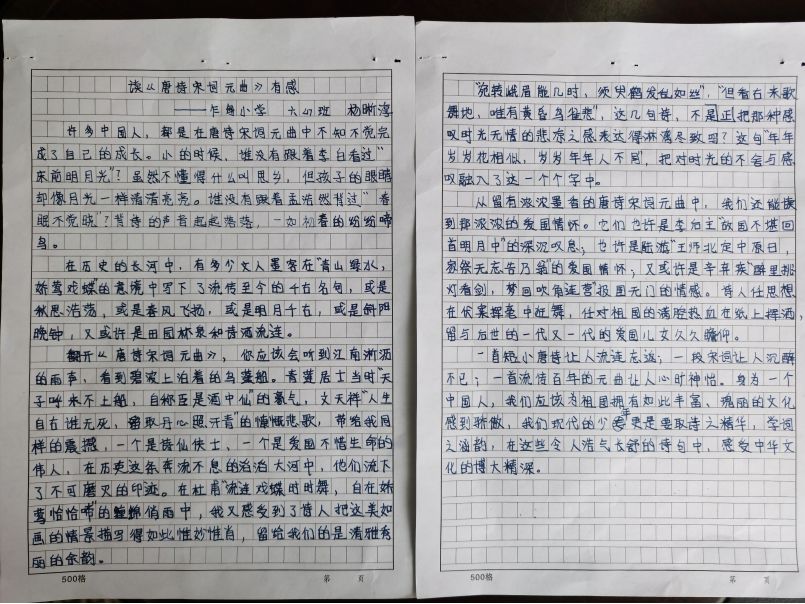 读《唐诗宋词元曲》有感
——乍甸小学 六(4)班 杨晰淳
许多中国人，都是在唐诗宋词元曲中不知不觉完
成了自己的成长。小的时候，谁没有跟着李白看过“
床前明月光”？虽然不懂得什么叫思乡，但孩子的眼睛
却像月光一样清清亮亮。谁没有跟着孟浩然背过“春
眠不觉晓”？背诗的声音起起落落，一如初春的纷纷啼
鸟。
在历史的长河中，有多少文人墨客在“青山绿水，
娇莺戏蝶”的意境中写下了流传至今的千古名句，或是
秋思浩荡，或是春风飞扬，或是明月千古，或是斜阳
晚钟，又或许是田园林泉和诗酒流连。
翻开《唐诗宋词元曲》，你应该会听到江南淅沥
的雨声，看到碧波上泊着的乌篷船。青莲居士当时“天
子呼来不上船，自称臣是酒中仙”的豪气，文天祥“人生
自在谁无死，留取丹心照汗青”的慷慨悲歌，带给我同
样的震撼，一个是诗仙侠士，一个是爱国不惜生命的
伟人，在历史这条奔流不息的滔滔大河中，他们流下
了不可磨灭的印迹。在杜甫“流连戏蝶时时舞，自在娇
莺恰恰啼”的缠绵俏雨中，我又感受到了诗人把这美如
画的情景描写得如此惟妙惟肖，留给我们的是清雅秀
丽的余韵。
500格
第 页
“宛转峨眉能几时，须臾鹤发乱如丝”，“但看古来歌
舞地，唯有黄昏鸟雀悲”，这几句诗，不是正把那种感
叹时光无情的悲凉之感表达得淋漓尽致吗？这句“年年
岁岁花相似，岁岁年年人不同”，把对时光的不舍与感
叹融入了这一个个字中。
从留有浓浓墨香的唐诗宋词元曲中，我们还能读
到那浓浓的爱国情怀。它们也许是李后主“故国不堪回
首明月中”的深沉叹息；也许是陆游“王师北定中原日，
家祭无忘告乃翁”的爱国情怀；又或许是辛弃疾“醉里挑
灯看剑，梦回吹角连营”报国无门的情感。诗人任思想
在伏案挥毫中狂舞，任对祖国的满腔热血在纸上挥洒，
留与后世的一代又一代的爱国儿女久久瞻仰。
一首短小唐诗让人流连忘返；一段宋词让人沉醉
不已；一首流传百年的元曲让人心旷神怡。身为一个
中国人，我们应该为祖国拥有如此丰富、瑰丽的文化
感到骄傲，我们现代的少年更是要取诗之精华，学词
之涵韵，在这些令人浩气长舒的诗句中，感受中华文
化的博大精深。
500格
第 页